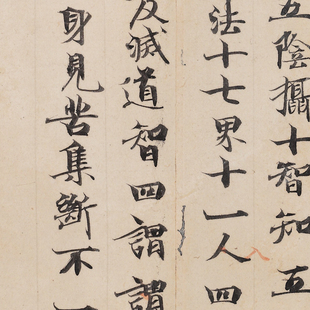 五陰攝十智知五
法十七界十一人四
及滅道智四謂謂
身見苦集斷不一